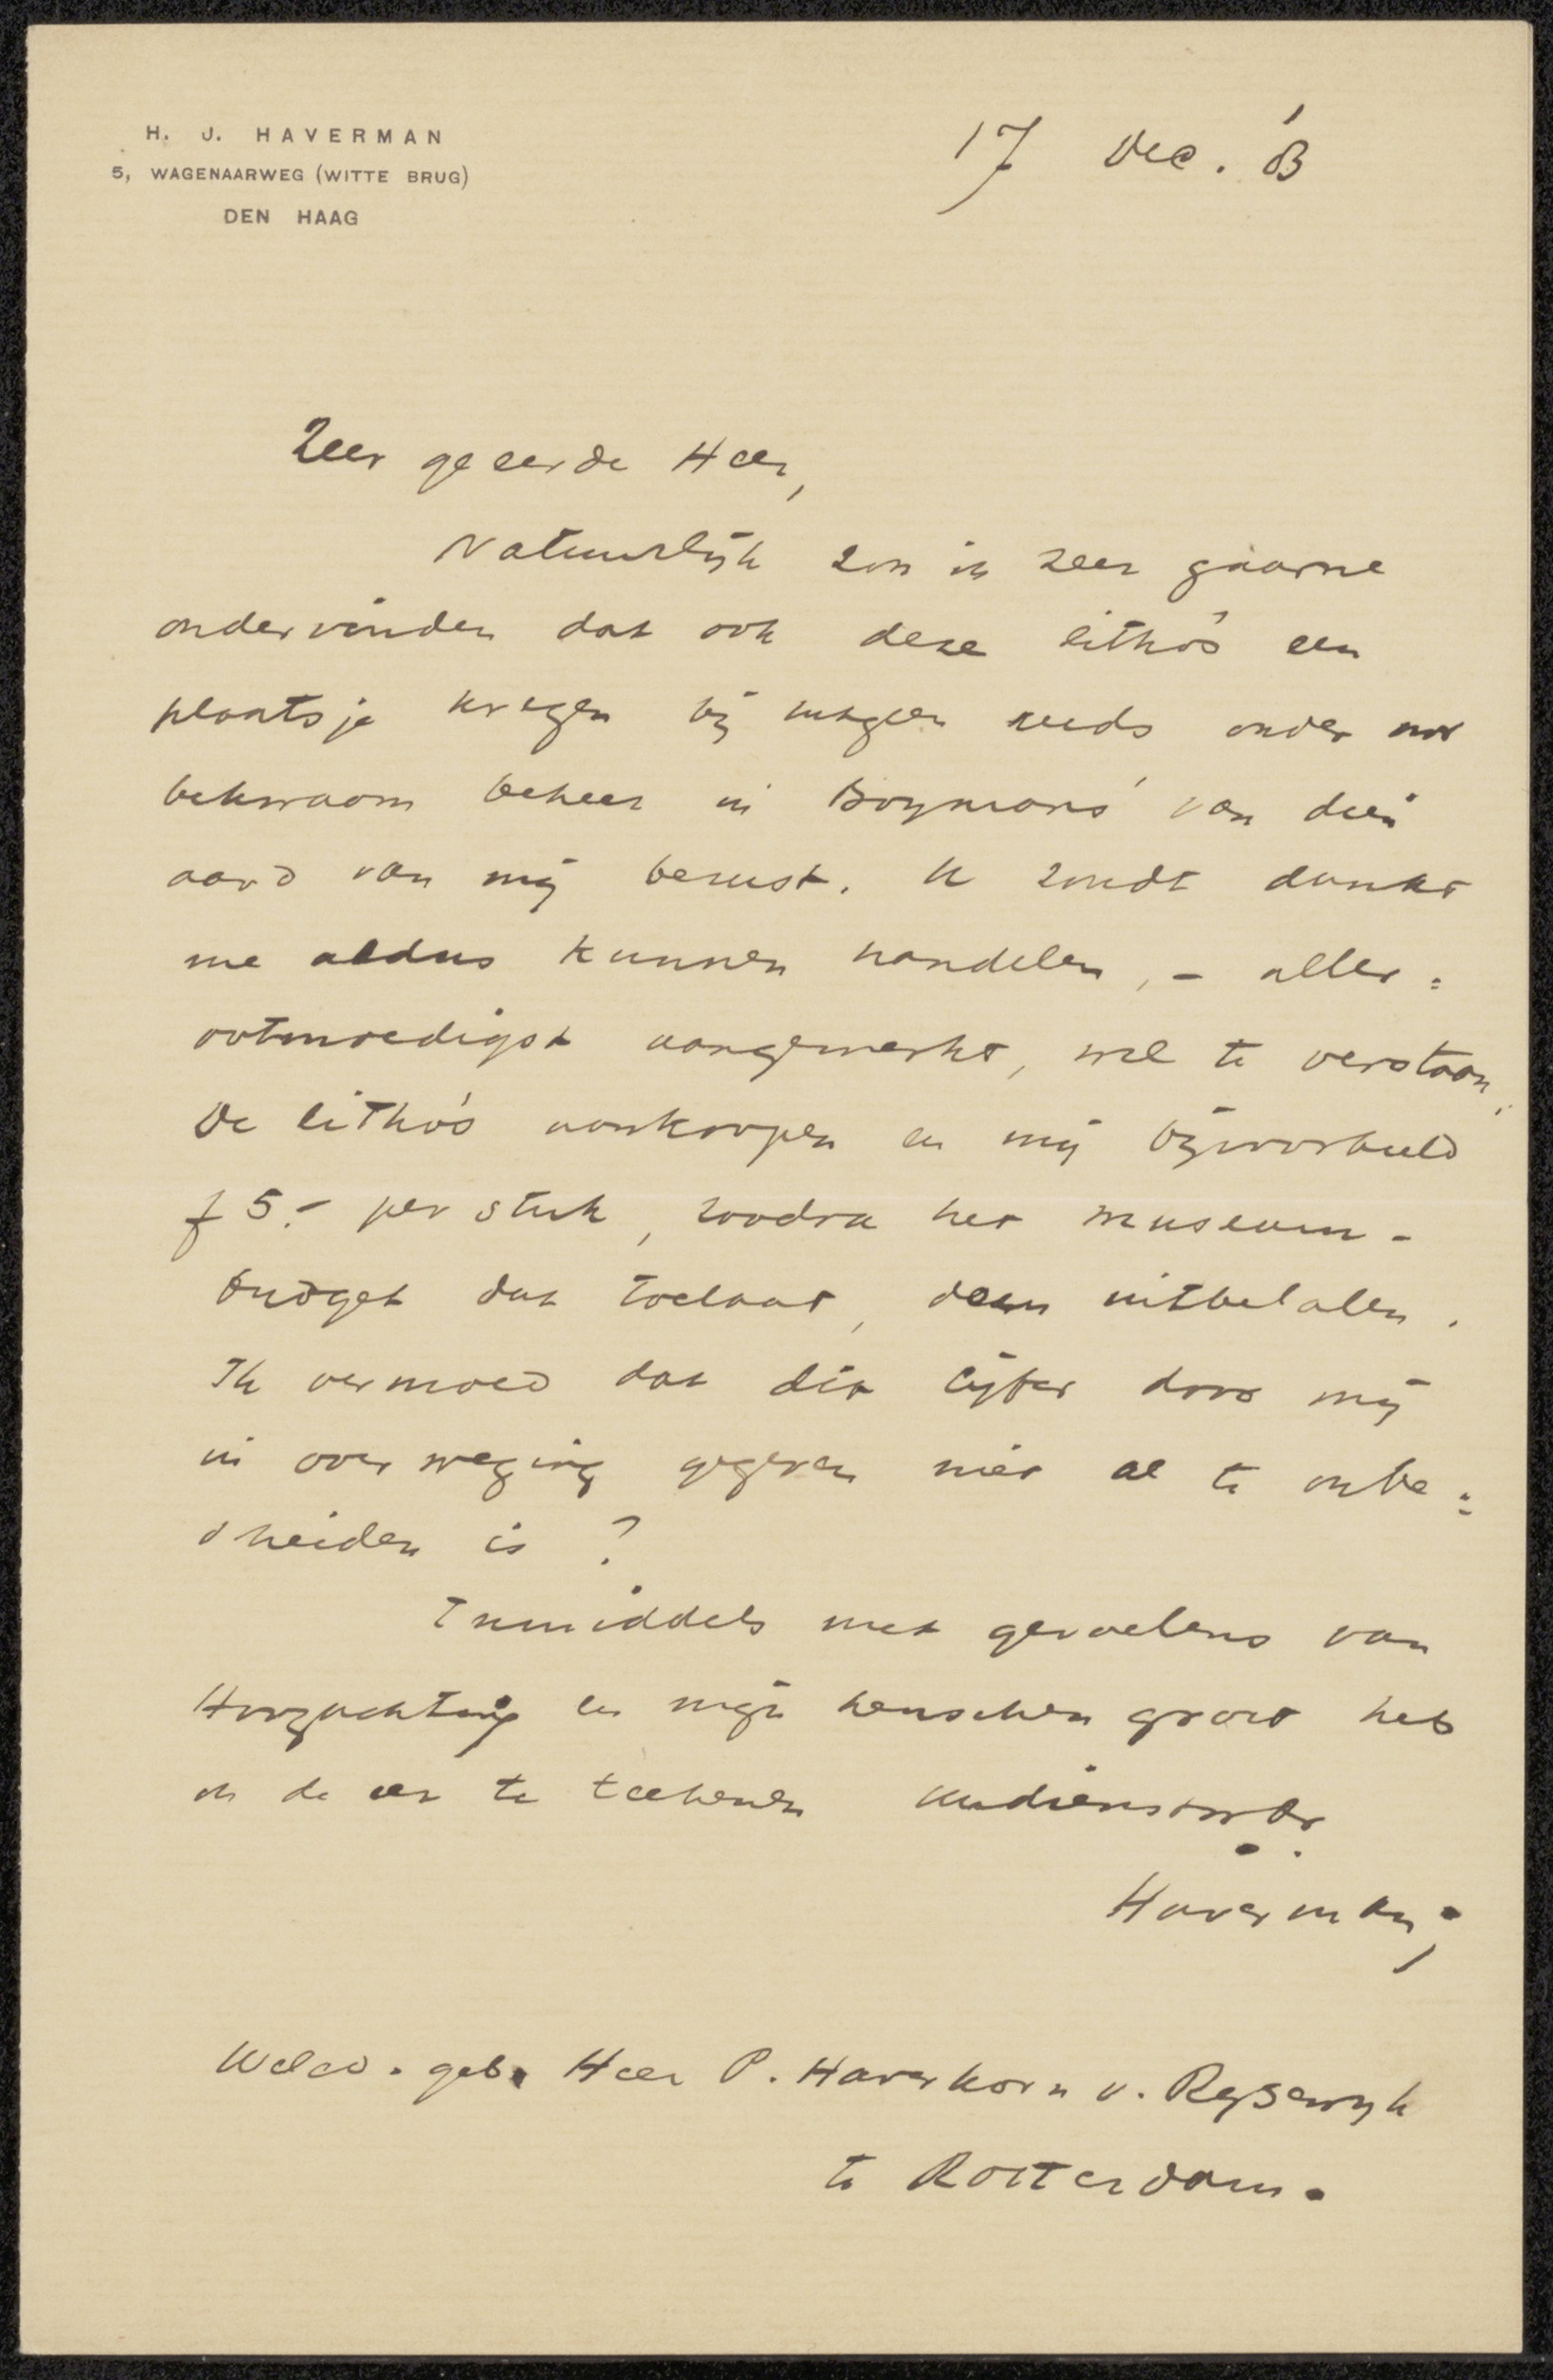 H. J. HAVERMAN
5, WAGENAARWEG (WITTE BRUG)
DEN HAAG
17 Dec.
Zeer geeerde Heer,
Natuurlijk zou ik zeer gaarne
ondervinden dat ook deze litho's een
plaatsje kregen bij hetgeen reeds onder uw
bekwaam beheer in Boymans' van dien
aard van mij berust. U zoudt dunkt
me aldus kunnen handelen, - aller=
ootmoedigst aangemerkt, wel te verstaan.
De litho's aankoopen en mij bijvoorbeeld
f 5.- per stuk, zoodra het museum-
budget dat toelaat, doen uitbetalen.
Ik vermoed dat dit cijfer door mij
in overweging gegeven niet al te onbe=
sheiden is?
Inmiddels met gevoelens van
Hoogachting en mijn heuschen groet heb
ik de eer te teekenen
Haverman
Weled. geb. Heer P. Haverkorn v. Rijsewijk
te Rotterdam.